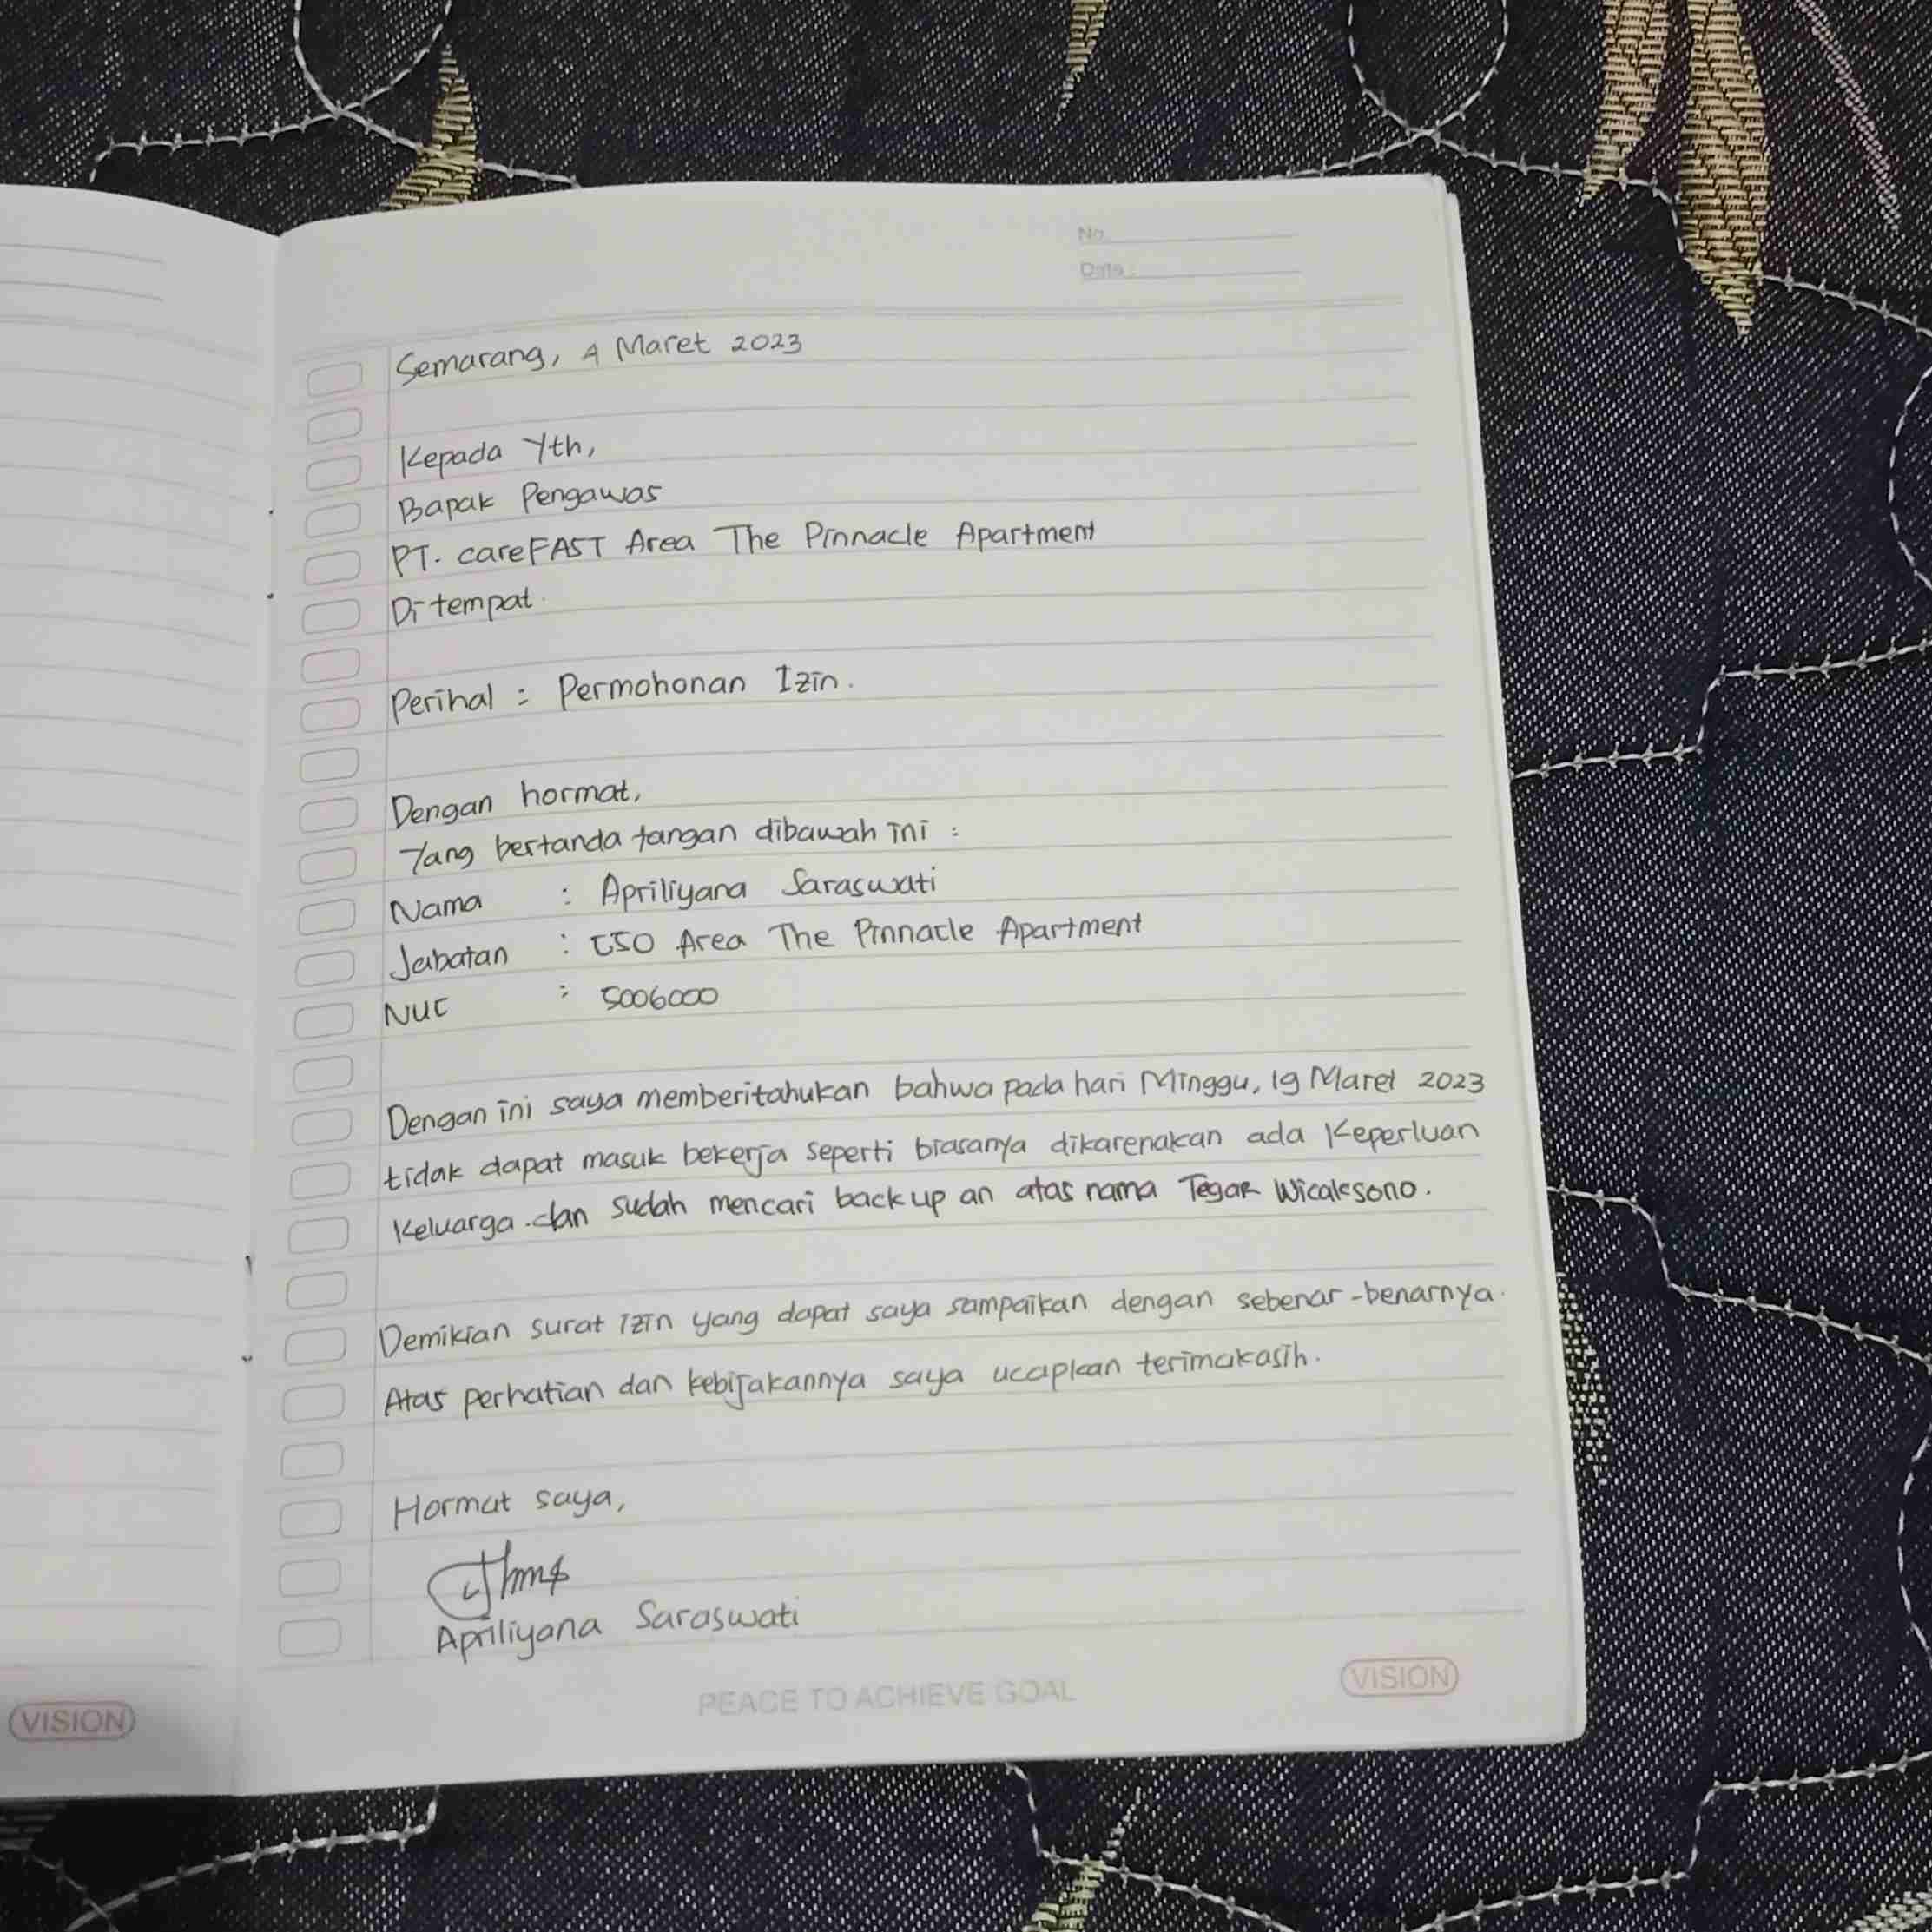 No.
Date :
Semarang, 4 Maret 2023
Kepada Yth,
Bapak Pengawas
PT. careFAST Area The Pinnacle Apartment
Di tempat.
Perihal : Permohonan Izin.
Dengan hormat,
Yang bertanda tangan dibawah ini :
Nama : Apriliyana Saraswati
Jabatan : CSO Area The Pinnacle Apartment
NUC : 5006000
Dengan ini saya memberitahukan bahwa pada hari Minggu, 19 Maret 2023
tidak dapat masuk bekerja seperti biasanya dikarenakan ada Keperluan
Keluarga. dan sudah mencari back up an atas nama Tegar Wicaksono.
Demikian surat izin yang dapat saya sampaikan dengan sebenar-benarnya.
Atas perhatian dan kebijakannya saya ucapkan terimakasih.
Hormat saya,
Apriliyana Saraswati
PEACE TO ACHIEVE GOAL
VISION
VISION